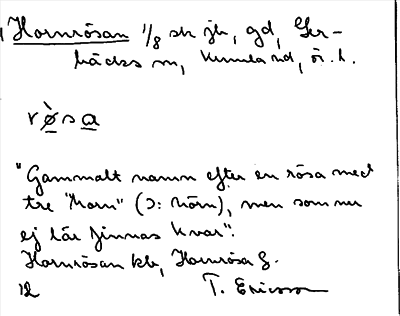 Hornrösan 1/8 sk jb, gd, Ler-
bäcks sn, Kumla hd, ör. l.
rø̀sa
"Gammalt namn efter en rösa med
tre "horn" (ɔ: hörn), men som nu
ej lär finnas kvar".
Hornrösan kb, Hornrösa G.
12 T. Ericsson